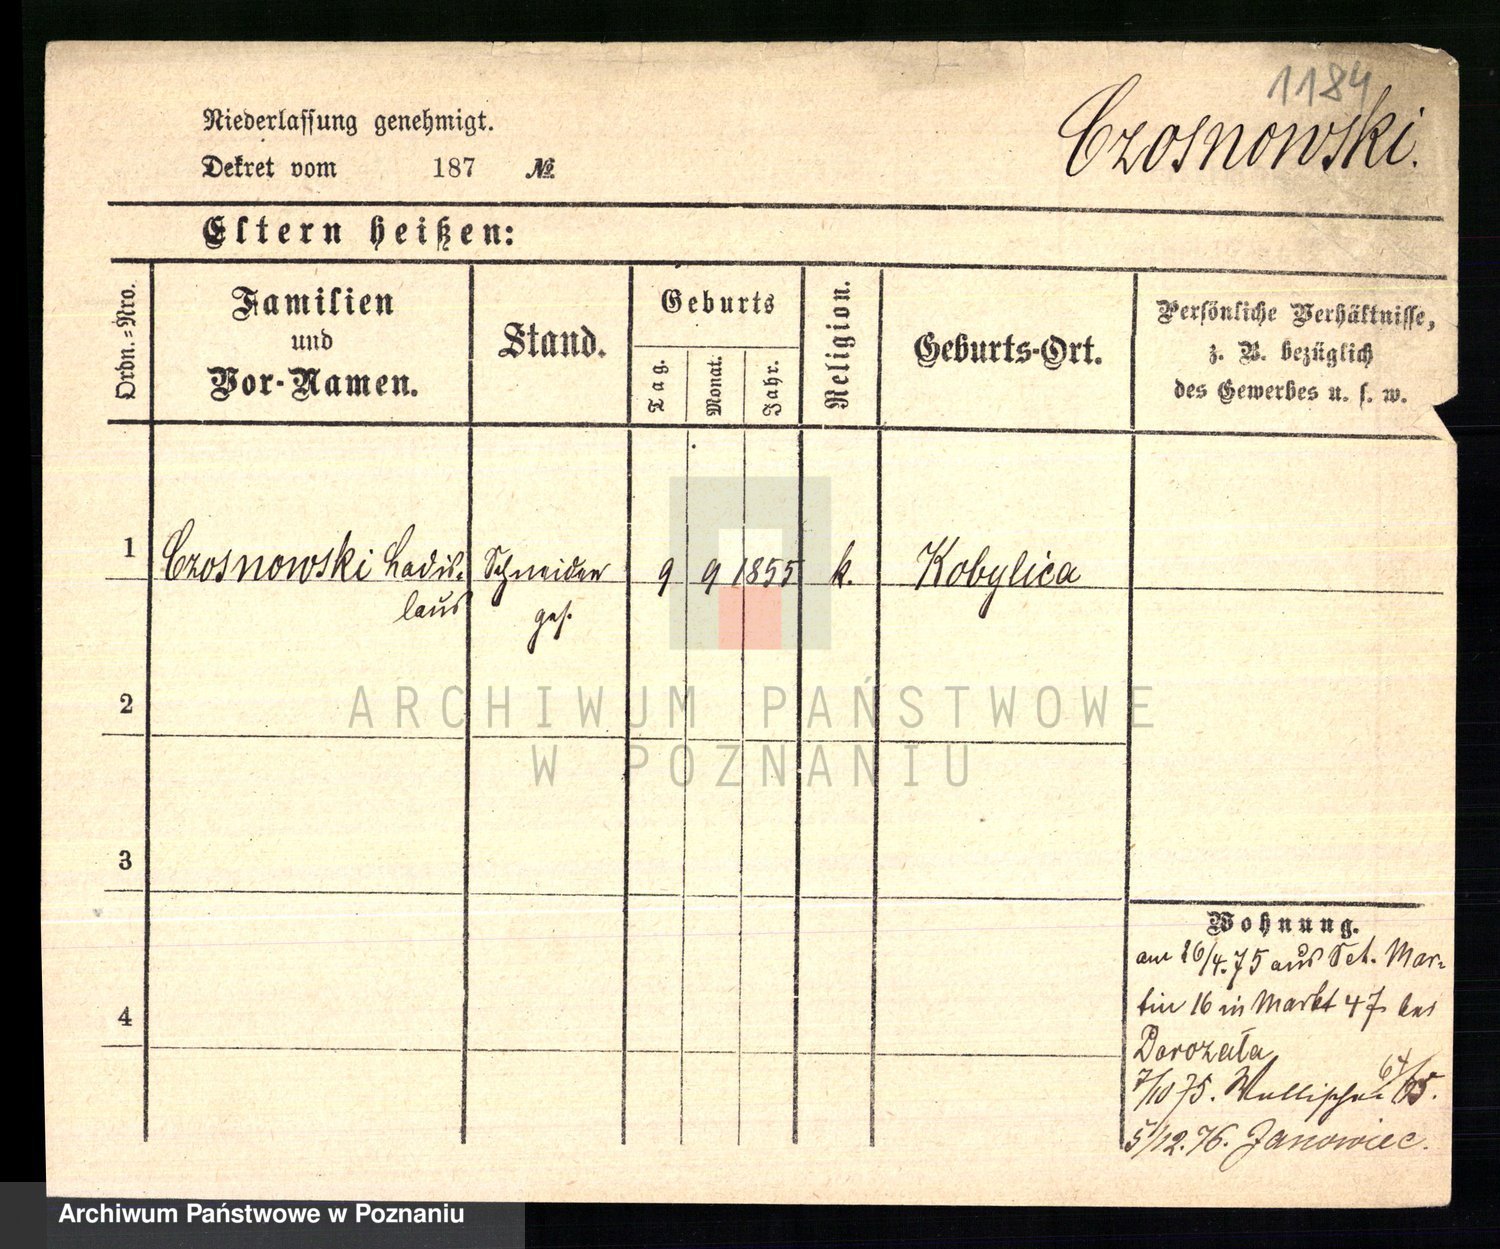 1184
Czosnowski.
Niederlassung genehmigt.
Dekret vom 187 №
Eltern heißen:
Ordn.=Nro.
Familien
und
Vor-Namen.
Stand.
Geburts
Tag.
Monat.
Jahr.
Religion.
Geburts-Ort.
Persönliche Verhältnisse,
z. B. bezüglich
des Gewerbes u. s. w.
1 Czosnowski Ladis= Schneider 9 9 1855 k. Kobylica
laus ges.
2
3
4
ARCHIWUM PAŃSTWOWE
W POZNANIU
Wohnung.
am 16/4.75 aus Sct. Mar=
tin 16 in Markt 47 bei
Dorozała
7/10 75. Wallischei 64/65.
5/12.76. Janowiec.
Archiwum Państwowe w Poznaniu